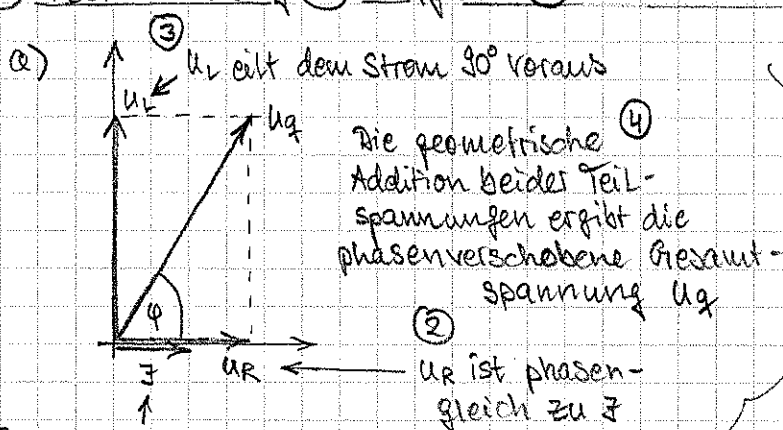 ③
a)
U_L eilt dem Strom 90° voraus
U_L
U_q
④
Die geometrische
Addition beider Teil-
spannungen ergibt die
phasenverschobene Gesamt-
spannung U_q
φ
②
I
U_R
U_R ist phasen-
gleich zu I